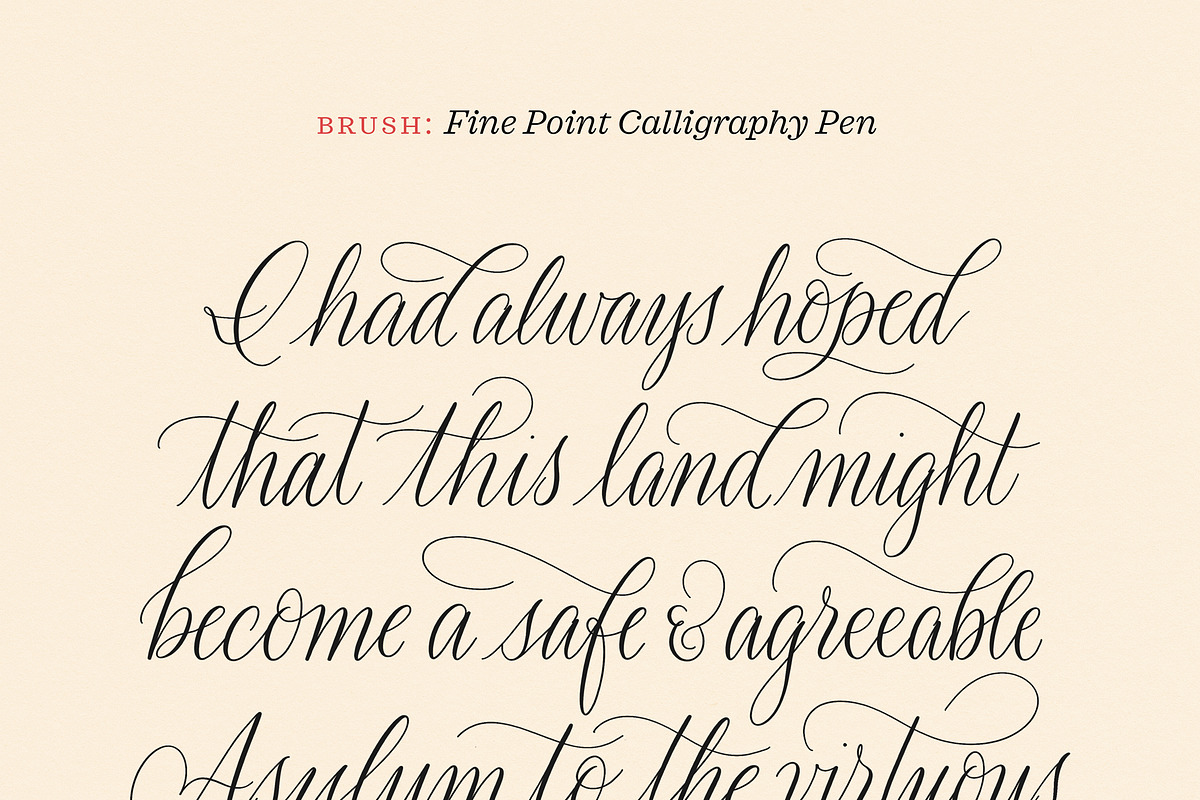 BRUSH: Fine Point Calligraphy Pen
I had always hoped
that this land might
become a safe & agreeable
Asylum to the virtuous